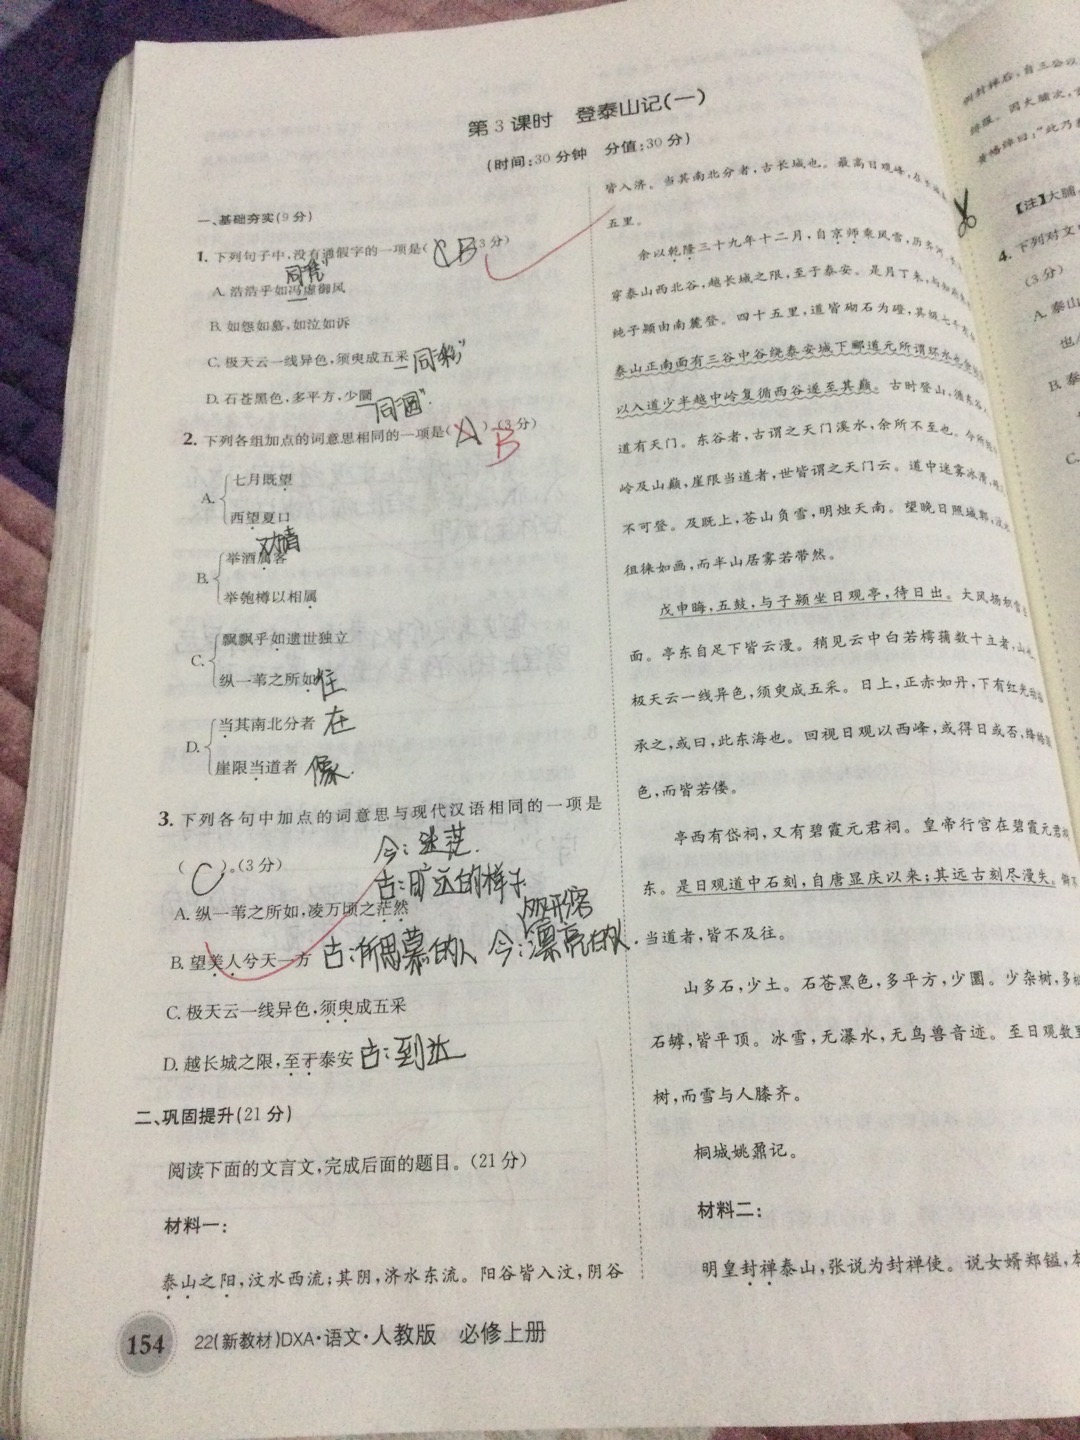 第3课时 登泰山记(一)
(时间:30分钟 分值:30分)
一、基础夯实(9分)
1.下列句子中,没有通假字的一项是( B 3分)
同"凭"
A.浩浩乎如冯虚御风
B.如怨如慕,如泣如诉
C.极天云一线异色,须臾成五采 同"彩"
D.石苍黑色,多平方,少圜
同"圆"
2.下列各组加点的词意思相同的一项是( A )(3分)
B
A.
七月既望
西望夏口
B.
举酒属客
举匏樽以相属
C.
飘飘乎如遗世独立
纵一苇之所如 往
D.
当其南北分者 在
崖限当道者 像
3.下列各句中加点的词意思与现代汉语相同的一项是
( C )。(3分)
今:迷茫.
古:旷远的样子
A.纵一苇之所如,凌万顷之茫然
B.望美人兮天一方 古:所思慕的人 今:漂亮的人.
C.极天云一线异色,须臾成五采
D.越长城之限,至于泰安 古:到达
二、巩固提升(21分)
阅读下面的文言文,完成后面的题目。(21分)
材料一:
泰山之阳,汶水西流;其阴,济水东流。阳谷皆入汶,阴谷
154 22(新教材)DXA·语文·人教版 必修上册
皆入济。当其南北分者,古长城也。最高日观峰,在长城
五里。
余以乾隆三十九年十二月,自京师乘风雪,历齐河
穿泰山西北谷,越长城之限,至于泰安。是月丁未,与知府
纯子颍由南麓登。四十五里,道皆砌石为磴,其级七千有
泰山正南面有三谷中谷绕泰安城下郦道元所谓环水也
以入道少半越中岭复循西谷遂至其巅。古时登山,循东谷
道有天门。东谷者,古谓之天门溪水,余所不至也。今所
岭及山巅,崖限当道者,世皆谓之天门云。道中迷雾冰滑,
不可登。及既上,苍山负雪,明烛天南。望晚日照城郭,
徂徕如画,而半山居雾若带然。
戊申晦,五鼓,与子颍坐日观亭,待日出。大风扬积雪
面。亭东自足下皆云漫。稍见云中白若樗蒱数十立者,山也
极天云一线异色,须臾成五采。日上,正赤如丹,下有红光
承之,或曰,此东海也。回视日观以西峰,或得日或否,绛皓
色,而皆若偻。
亭西有岱祠,又有碧霞元君祠。皇帝行宫在碧霞元君
东。是日观道中石刻,自唐显庆以来;其远古刻尽漫失。僻不
当道者,皆不及往。
山多石,少土。石苍黑色,多平方,少圜。少杂树,多
石罅,皆平顶。冰雪,无瀑水,无鸟兽音迹。至日观数里
树,而雪与人膝齐。
桐城姚鼐记。
材料二:
明皇封禅泰山,张说为封禅使。说女婿郑镒,本
【注】大脯
4.下列对文
(3分)
A.泰山
也
B.泰
C.